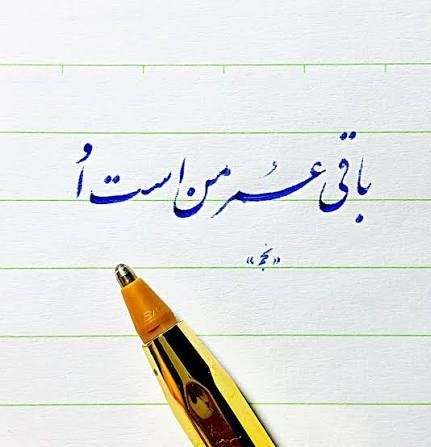 باقی عمر من است اُو
«نجم»